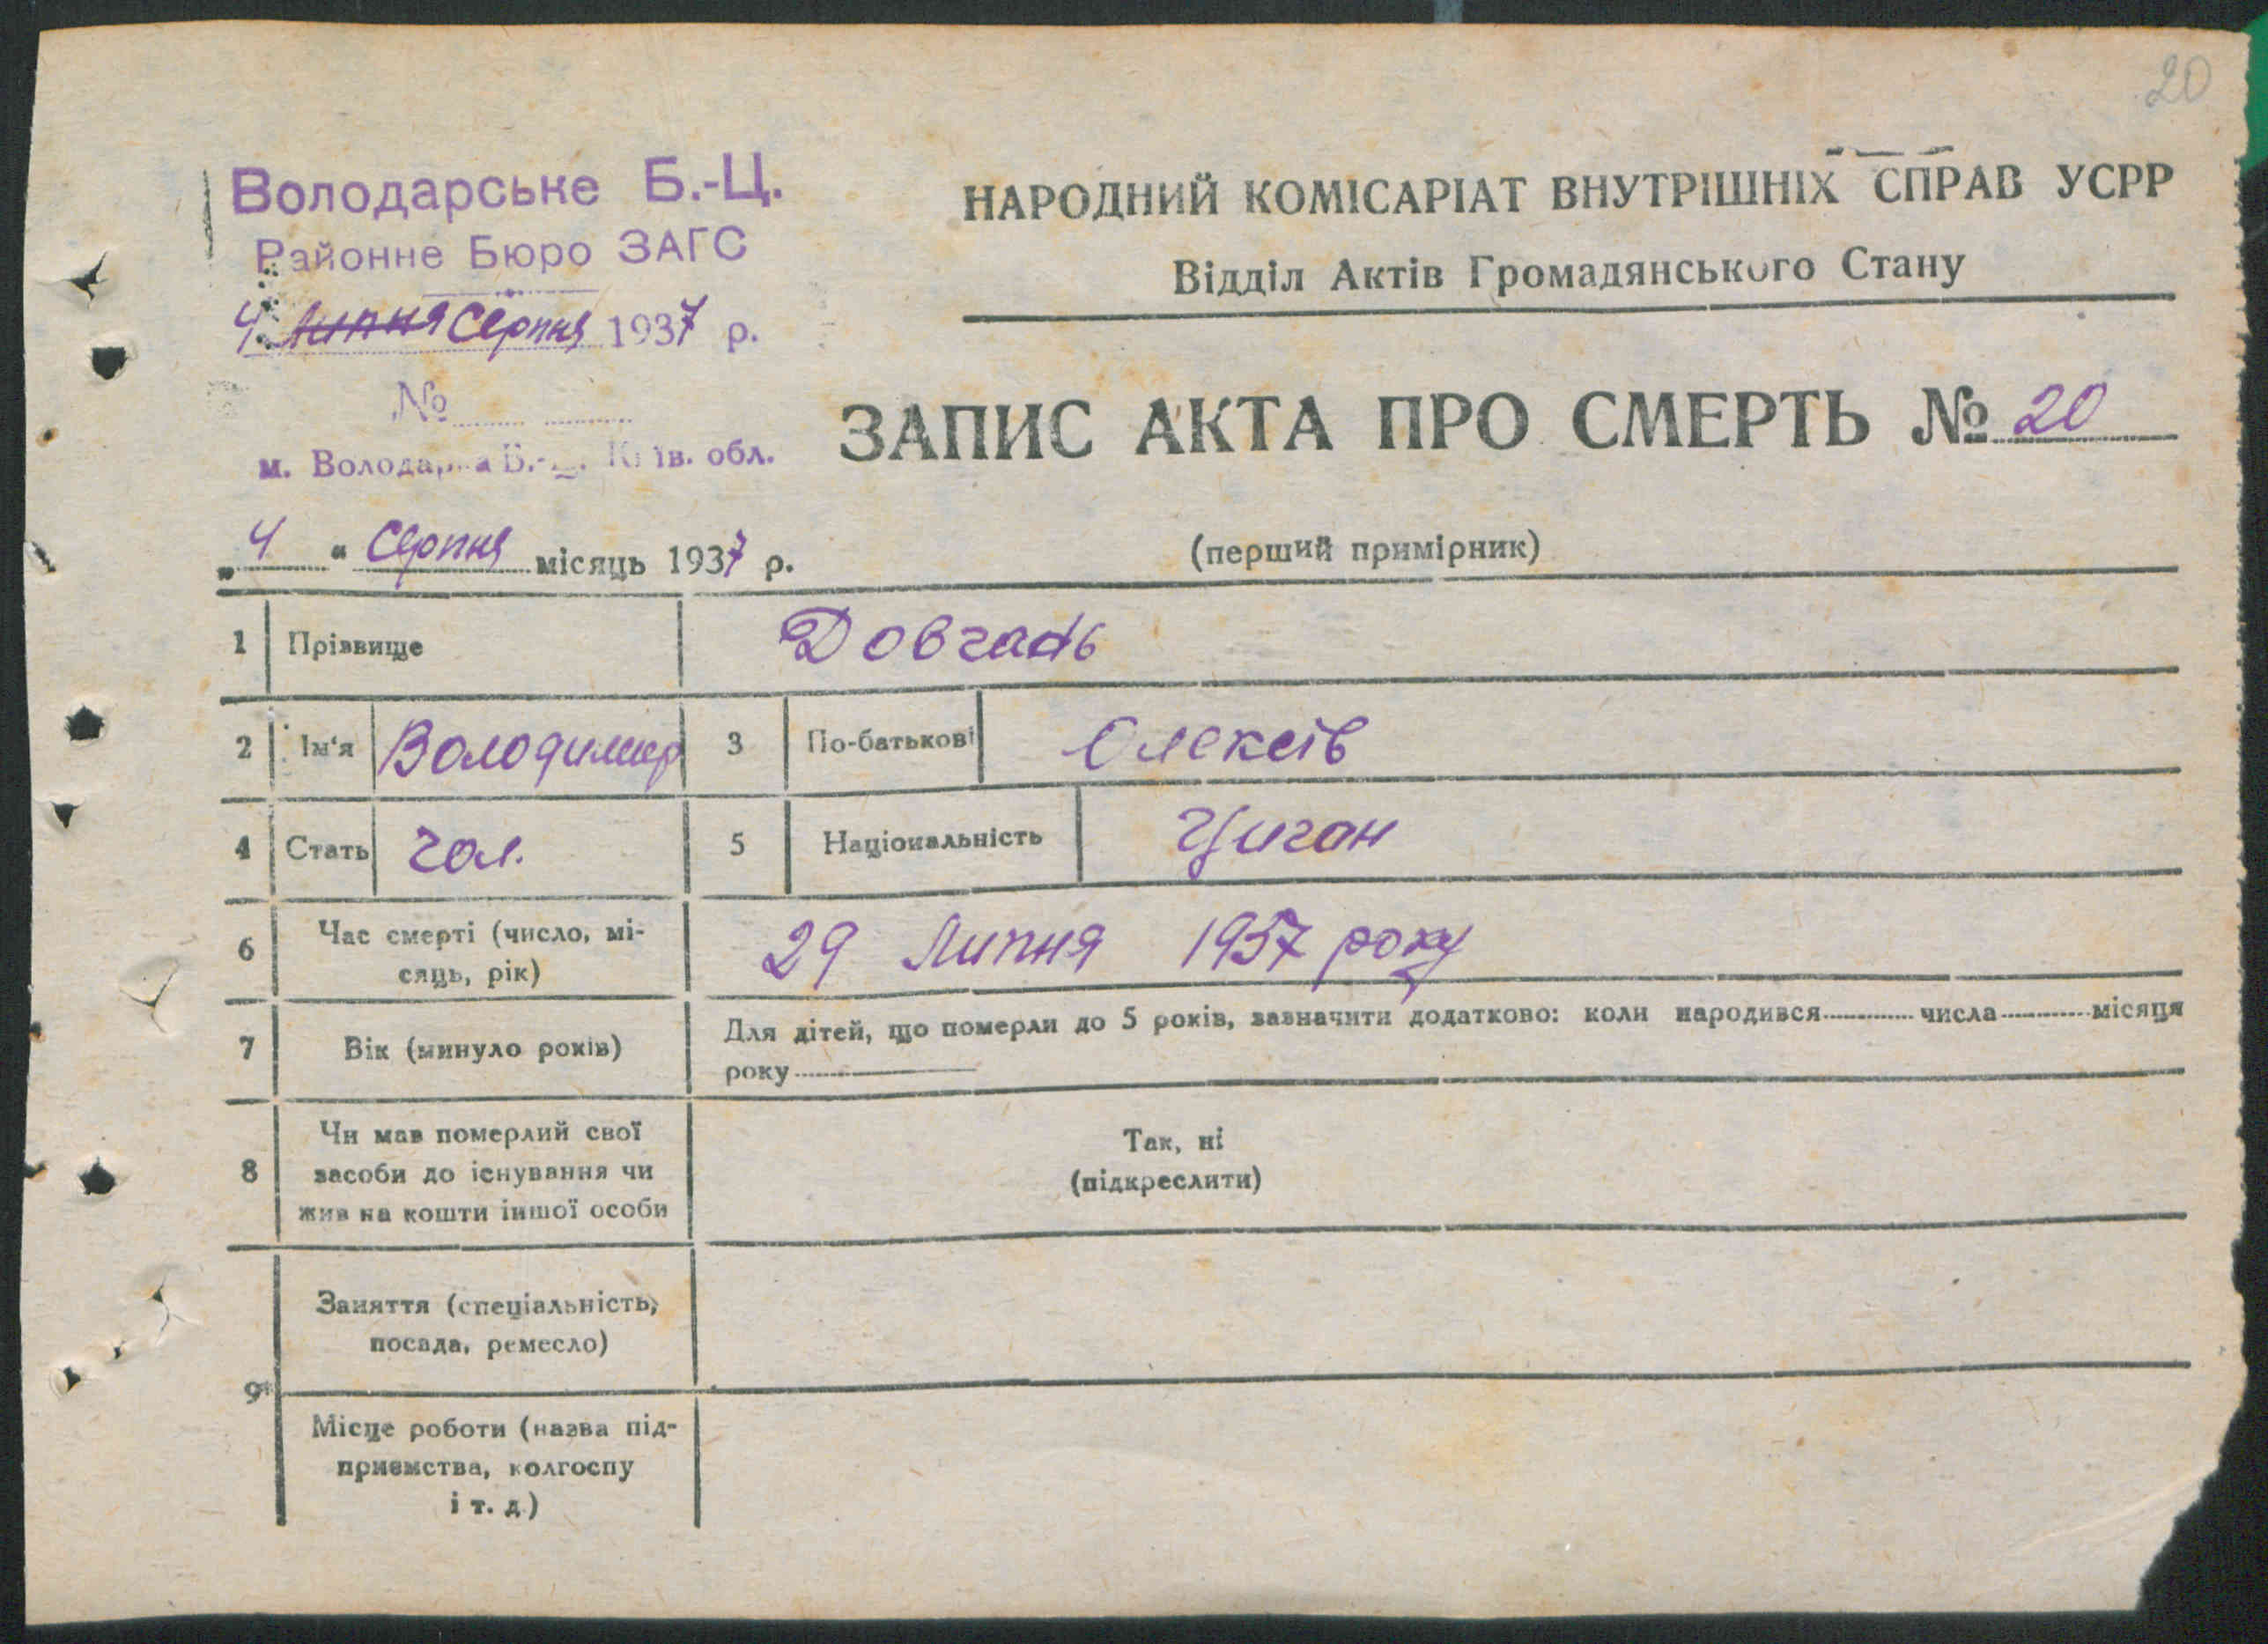 20
Володарське Б.-Ц.
Районне Бюро ЗАГС
4 липня Серпня 1937 р.
№
м. Володарка Б.-Ц. Київ. обл.
НАРОДНИЙ КОМІСАРІАТ ВНУТРІШНІХ СПРАВ УСРР
Відділ Актів Громадянського Стану
ЗАПИС АКТА ПРО СМЕРТЬ № 20
„4“ Серпня місяць 1937 р.
(перший примірник)
1 Прізвище Довгань
2 Ім'я Володимир 3 По-батькові Олексів
4 Стать чол. 5 Національність Циган
6 Час смерті (число, мі-
сяць, рік) 29 Липня 1937 року
7 Вік (минуло років) Для дітей, що померли до 5 років, зазначити додатково: коли народився числа місяця
року
8 Чи мав померлий свої
засоби до існування чи
жив на кошти іншої особи
Так, ні
(підкреслити)
9 Заняття (спеціальність,
посада, ремесло)
Місце роботи (назва під-
приємства, колгоспу
і т. д.)